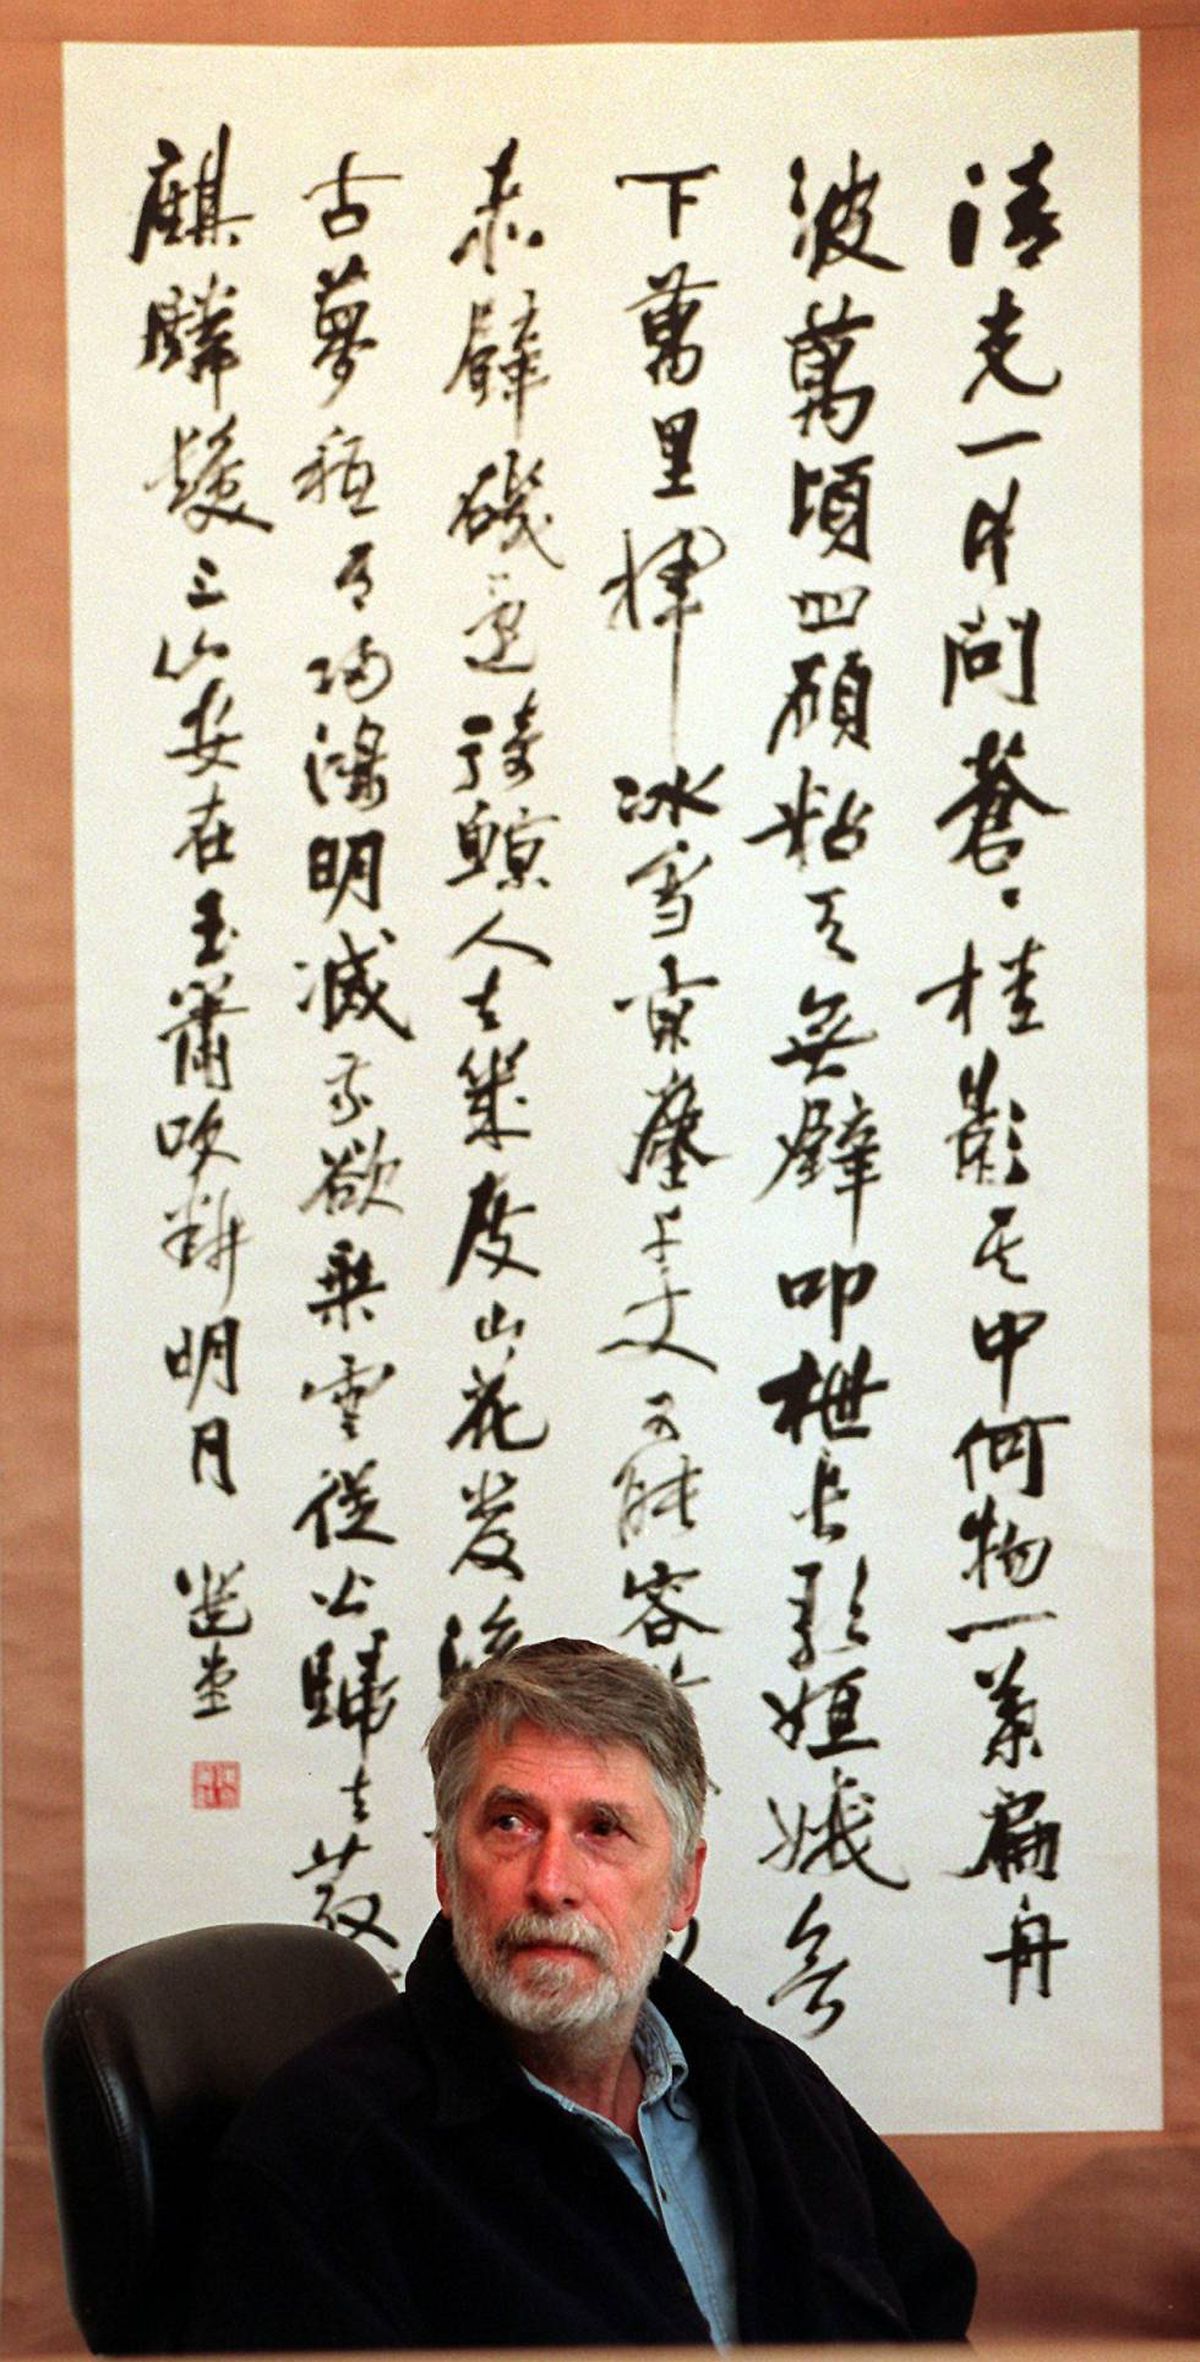 清光一片問蒼〻桂影其中何物一葉扁舟
波萬頃四顧粘天無壁叩枻長歌姮娥欲
下萬里揮冰雪京塵千丈可能容
赤壁磯邊騎鯨人去幾度山花發
古夢秖有歸鴻明滅我欲乘雲從公歸去散
麒麟髮三山安在玉簫吹斷明月
選堂